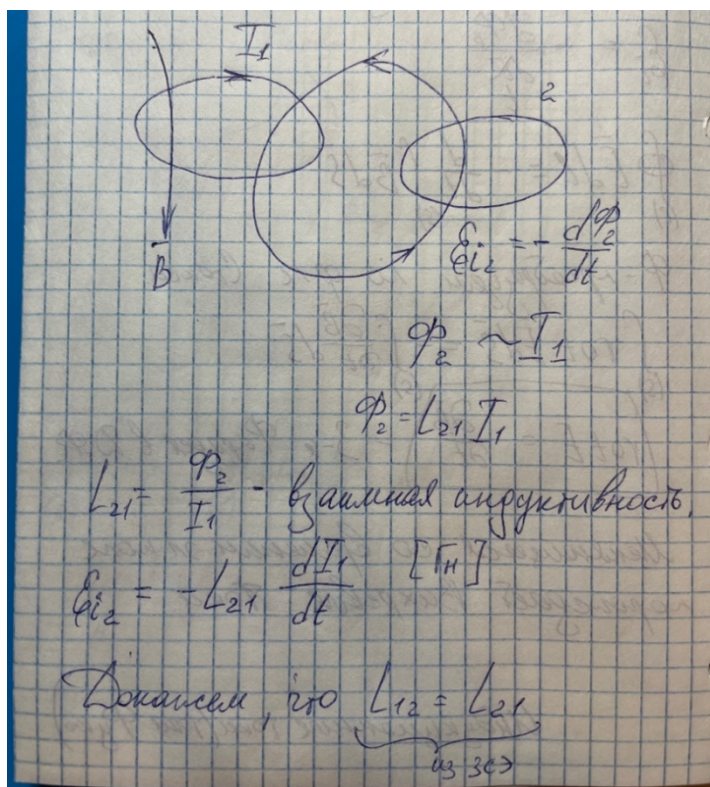 I₁
2
B̅
ℰi₂ = - dФ₂/dt
Ф₂ ~ I₁
Ф₂ = L₂₁ I₁
L₂₁ = Ф₂/I₁ - взаимная индуктивность,
[Гн]
ℰi₂ = -L₂₁ dI₁/dt
Докажем, что L₁₂ = L₂₁
из ЗСЭ